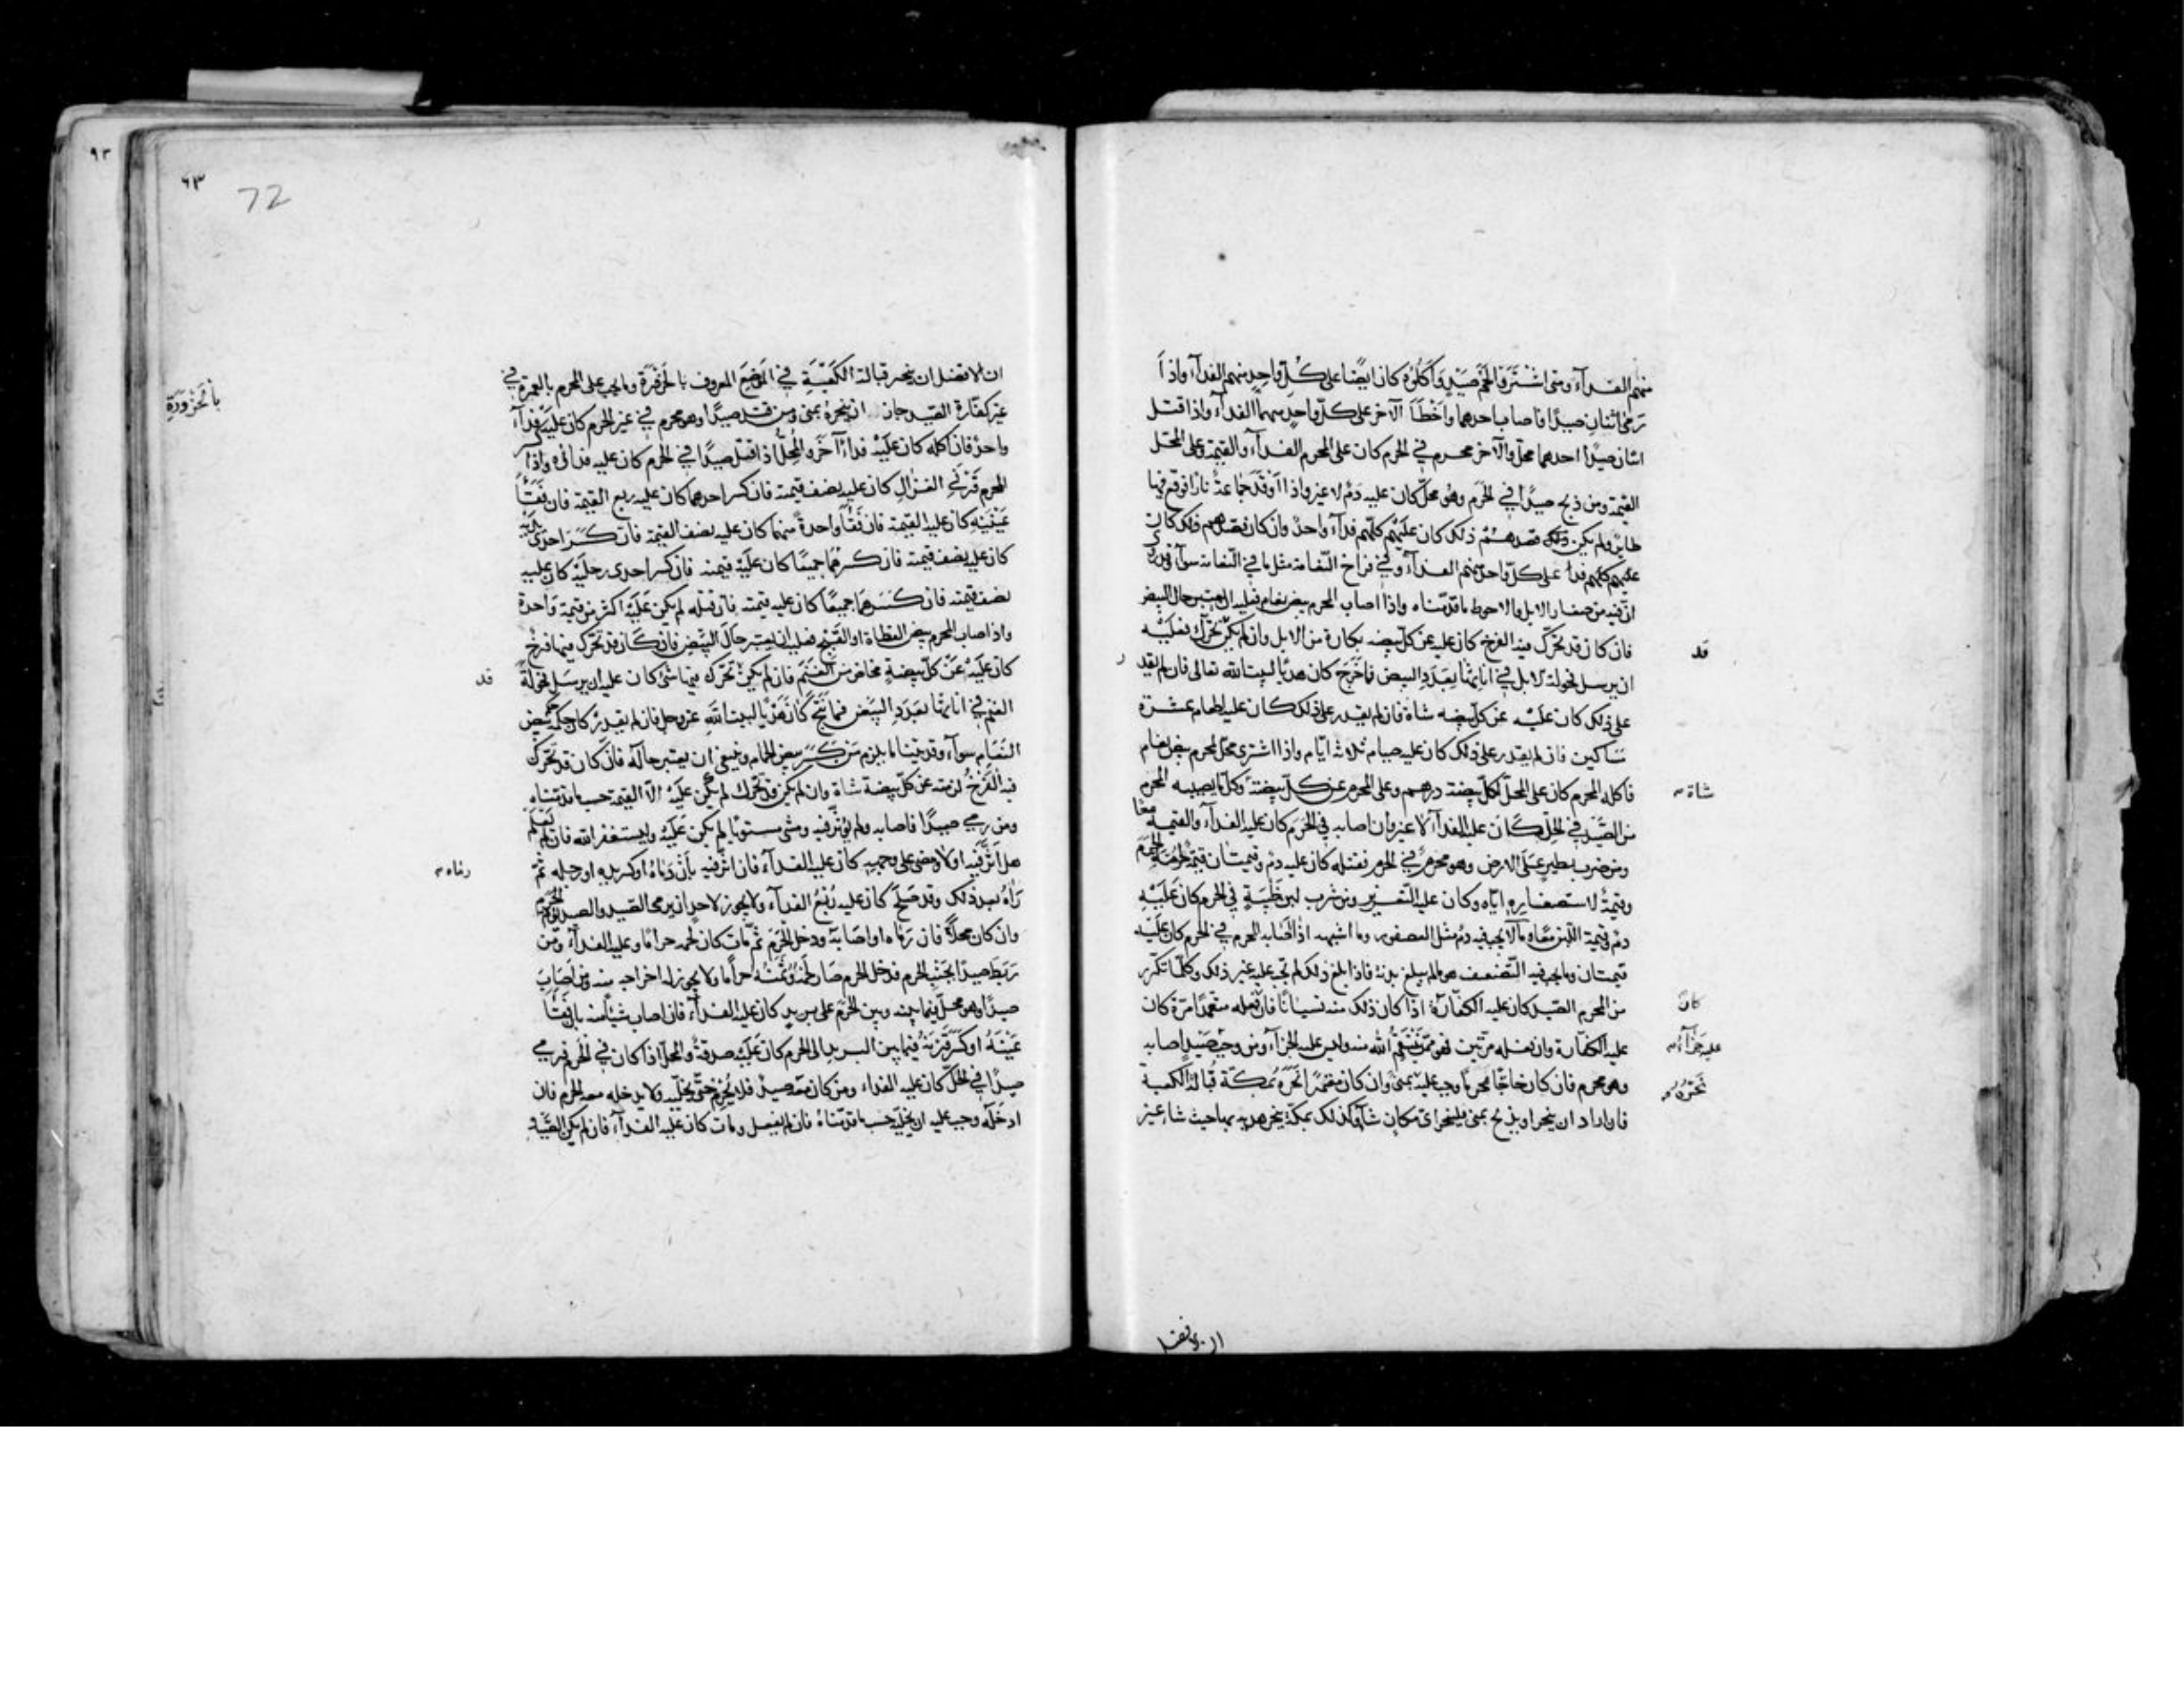 منهم الفدآء ومتى اشترَوا لحم صَيْدٍ وَاَكَلُوْهُ كان ايضًا على كُلّ واحِدٍ منهم الفدآء واذا
رَمىٰ اثنان صيدًا فاصاب احدهما واَخْطَأَ الآخر على كلّ واحدٍ منهما الفدآء واذا اقتل
اثنان صيدًا احدهما محلّ والآخر محرم في الحرم كان على المحرم الفدآء والقيمة وعلى المحلّ
القيمة ومن ذبح صيدًا في الحَرَم وهُو محلّ كان عليه دَمٌ لا غير واذا اَوْقَدَ جماعةٌ نارًا فوقع فيها
طايرٌ ولم يكن ذلك قصدهُمْ ذلك كان عليهم كلّهم فدآءٌ واحدٌ وان كان قصدهم ذلك كان
على كلّ واحدٍ منهم الفدآءُ وفي فراخ النّعامة مثل ما في النّعامة سوآء وقد روي
انّ فيه من صغار الابل والاحوط ما قدّمناه واذا اصاب المحرم بيض نعام فعليه ان يعتبر حال البيض
فان كان قد تحرّك فيه الفرخ كان عليه عن كلّ بيضه بكارة من الابل وان لم يكن تحرّك فعليْه
قد
ان يرسل فحولة الابل في اناثها بِعَدَدِ البيض فما خَرَجَ كان هديًا لبيت الله تعالى فان لم يقدر
على ذلك كان عليْه عن كلّ بيضه شاة فان لم يقدر على ذلك كان عليه اطعام عشرة
مَسَاكين فان لم يقدر على ذلك كان عليه صيام ثلاثة ايّام واذا اشترى محلّ لمحرم بيض نعام
فاكله المحرم كان على المحلّ لكلّ بيضة درهم وعلى المحرم عن كلّ بيضةٍ وكلّ ما يصيبه المحرم
شاة
من الصّيْد في الحِلّ كَانَ عليه الفدآء لا غير وان اصابه في الحَرَم كان عليه الفدآء والقيمة معًا
ومن ضرب بطير على الارض وهو محرمٌ في الحرم فقتله كان عليه دم وقيمتان قيمة لحُرْمَةِ الحَرَم
وقيمةٌ لاستصغاره ايّاه وكان عليه التّعزير ومن شرب لبن ظَبْيَةٍ في الحرم كان عَلَيْهِ
دم وقيمة اللّبن معًا وما لا يجب فيه دم مثل العصفور وما اشبهه اذا اصابه المحرم في الحرم كان عليْه
قيمتان وما يجب فيه التّضعيف هو ما لم يبلغ بدنة فاذا بلغ ذلك لم تجب عليه غير ذلك وكلّما تكرّر
من المحرم الصّيد كان عليه الكفّارة اذا كان ذلك منه نسيانًا فان فعله متعمدًا مرّة كان
كانَ
عليه الكفّارة وان فعله مرّتين فهو ممّن يَنْتَقِمُ الله منه وليس عليه الجزآء ومن وجب صَيْدٍ اصابه
عليه جزآء
وهو محرم فان كان حاجًّا نحر ما وجب عليه بمنىٰ وان كان معتمرًا نَحَرَهُ بمكّة قبالة الكعبة
نَحَرَ
فان اراد ان ينحر او يذبح بمنى فلينحر اىّ مكان شآء وكذلك بمكّة ينحر هديه بها حيث شاء غير
ان الافضل
ان الافضل ان ينحر قبالة الكَعْبَةِ في المَوْضِعَ المعروف بالحَزْوَرَة وما يجب على المحرم بالعمرة في
بالْحَزْوَرَةِ
غير كفّارة الصّيد جاز ان ينحره بمنى ومن قتل صيدًا وهو محرم في غير الحرم كان عليْه فدآءٌ
واحدٌ فان اكله كان عليْه فداءٌ آخَر والمُحِلُّ اذا قتل صيدًا في الحرم كان عليه فداؤه واذا كسر
المحرم قَرْنَي الغزالِ كان عليه نصف قيمته فان كسر احدهما كان عليه ربع القيمة فان فَقَأ
عَيْنَيْهِ كان عليه القيمة فان فَقَأَ واحدةً منهما كان عليه نصف القيمة فان كسَرَ احدى يديه
كان عليه نصف قيمته فان كسرهُما جميعًا كان عليْه قيمته فان كسر احدى رجليْه كان عليه
نصف قيمته فان كسَرَهما جميعًا كان عليه قيمته فان قتله لم يكن عَلَيْهِ اكثر من قيمة واحدة
واذا اصاب المحرم بيض القطاة او القَبْج فعليه ان يعتبر حالَ البَيْض فان كَانَ قد تحرّك فيها فرخ
كان عليْه عن كلّ بيضةٍ مخاضٌ من الغَنَم فان لم يكن تَحرّك فيها شئ كان عليه ان يرسل فحولة
قد
الغنم في اناثها بعدَدِ البَيْض فما نتج كَانَ هَدْيًا لبيت اللهِ عزّ وجلّ فان لم يقدرْ كان حكمه حكم بيض
النّعَام سوآء وقد بيّنا ما يلزم مَن كَسَر بيض الحمام وينبغي ان يعتبر حاله فان كان قد تحرّك
فيه الفَرْخُ لزمته عن كلّ بيضة شاة وان لم يكن قد تحرّك لم يكن عليْه الّا القيمة حسب ما قدّمناه
ومن رمى صيدًا فاصابه ولم يؤثّر فيه ومشى مستويًا لم يكن عَلَيْهِ وليستغفر الله فان لم يَعْلَمْ
هل اَثّرَ فيه او لا ومضى على وجهه كان عليه الفدآء فان اثّر فيه بان دَمَاهُ او كسر يده او رجله ثمّ
رماه
رَاٰهُ بعد ذلك وقد صَلَحَ كان عليه رُبْعُ الفدآء ولا يجوز لاحد ان يرمى الصّيد والصيد يؤمّ الحَرَم
وان كان محلًّا فان رماه او اصَابَهُ ودخل الحَرَمَ ثُمّ مات كان لحمه حرامًا وعليه الفدآء ومَن
رَبَطَ صيدًا بجَنْبِ الحرم فدخل الحرم صَارَ لحمُهُ وَثَمنُهُ حرامًا ولا يجوز له اخراجه منه ومَن اَصَابَ
صيدًا وهو محلّ فيما بينه وبين الحَرَم على بريدٍ كان عليه الفدآءُ فان اصاب شيئًا منه بان فَقَأَ
عَيْنَهُ او كَسَرَ قَرْنَهُ فيما بين البريد الى الحرم كان عَلَيْه صدقةٌ والمحلّ اذا كان في الحَرَم فرمى
صيدًا في الحَلّ كان عليه الفداء ومن كان معه صيدٌ فلا يُحْرِمْ حَتّى يخلّيه ولا يدخله معه الحرم فان
ادخَلَهُ وجب عليه ان يخليه حسب ما قدّمناهُ فان لم يفعل ومات كان عليه الفدآء فان لم يكن الصّيد
٩٣
٦٣
72